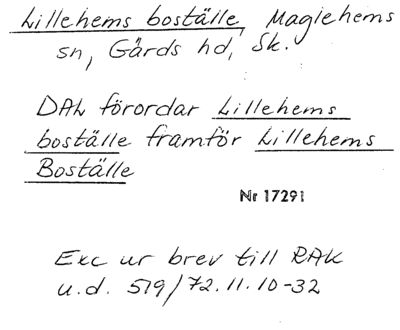 Lillehems boställe, Maglehems
sn, Gärds hd, Sk.
DAL förordar Lillehems
boställe framför Lillehems
Boställe
Nr 17291
Exc ur brev till RAK
u.d. 519/72.11.10-32